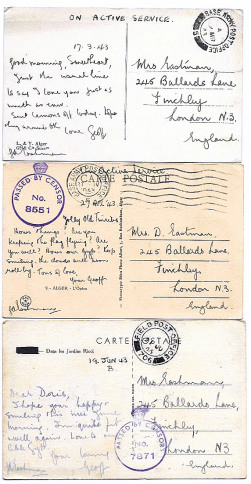 ON ACTIVE SERVICE.
17.3.43
Good morning, Sweetheart,
Just the usual line
to say I love you just as
much as ever.
Sent lemons off today. Hope
they arrive OK
Love Geoff
Mrs Eastman,
245 Ballards Lane,
Finchley
London N.3.
England.
BASE ARMY POST OFFICE
L. & Y. Alger
PASSED BY CENSOR
No.
8551
Active Service
CARTE POSTALE
27 APL '43
Jolly Old Twirls
How's things? Are you
keeping the flag flying? Are
you well? Keep
smiling, the clouds will soon
roll by. Tons of love,
Your Geoff
9. - ALGER. - L'Opéra
Mrs. D. Eastman.
245 Ballards Lane,
Finchley,
London N.3.
England
FIELD POST OFFICE
CARTE POSTALE
Dans les Jardins
19 JUN 43
B
Dear Doris,
I hope you're happy &
smiling this
morning. I'm quite fit &
well again. Love to
Geoff
PASSED BY CENSOR
No.
7871
Mrs Eastman,
245 Ballards Lane,
Finchley,
London N3
England.